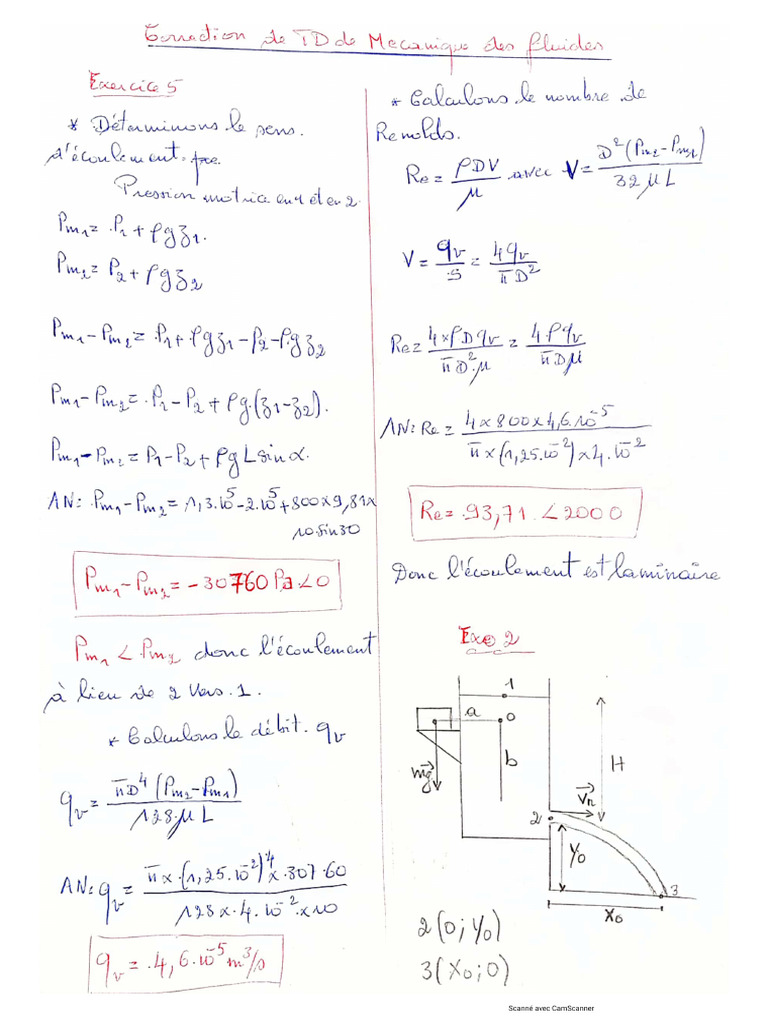 Correction de TD de Mecanique des fluides
Exercice 5
* Déterminons le sens.
d'écoulement.
Pression motrice en 1 et en 2.
Pm1 = P1 + ρgz1.
Pm2 = P2 + ρgz2
Pm1-Pm2 = P1 + ρgz1 - P2 - ρgz2
Pm1-Pm2 = P1 - P2 + ρg.(z1-z2).
Pm1-Pm2 = P1-P2 + ρgLsinα.
AN: Pm1-Pm2 = 1,3.10^5 - 2.10^5 + 800×9,81×
10.sin30
Pm1-Pm2 = -30760 Pa < 0
Pm1 < Pm2 donc l'écoulement
à lieu de 2 vers 1.
* Calculons le débit. qv
qv = πD^4 (Pm2-Pm1) / 128.μL
AN: qv = π×.(1,25.10^-2)^4 ×.307.60 / 128×.4.10^-2.×10
qv = 4,6.10^-5 m^3/s
* Calculons le nombre de
Renolds.
Re = ρDV / μ avec V = D^2 (Pm2-Pm1) / 32 μL
V = qv / S = 4qv / πD^2
Re = 4×ρDqv / πD^2.μ = 4ρqv / πDμ
AN: Re = 4×800×4,6.10^-5 / π×(1,25.10^-2)×4.10^-2
Re = 93,71 < 2000
Donc l'écoulement est laminaire
Exo 2
1
a
0
b
H
mg
2
Y0
3
X0
2(0; Y0)
3(X0; 0)
Scanné avec CamScanner